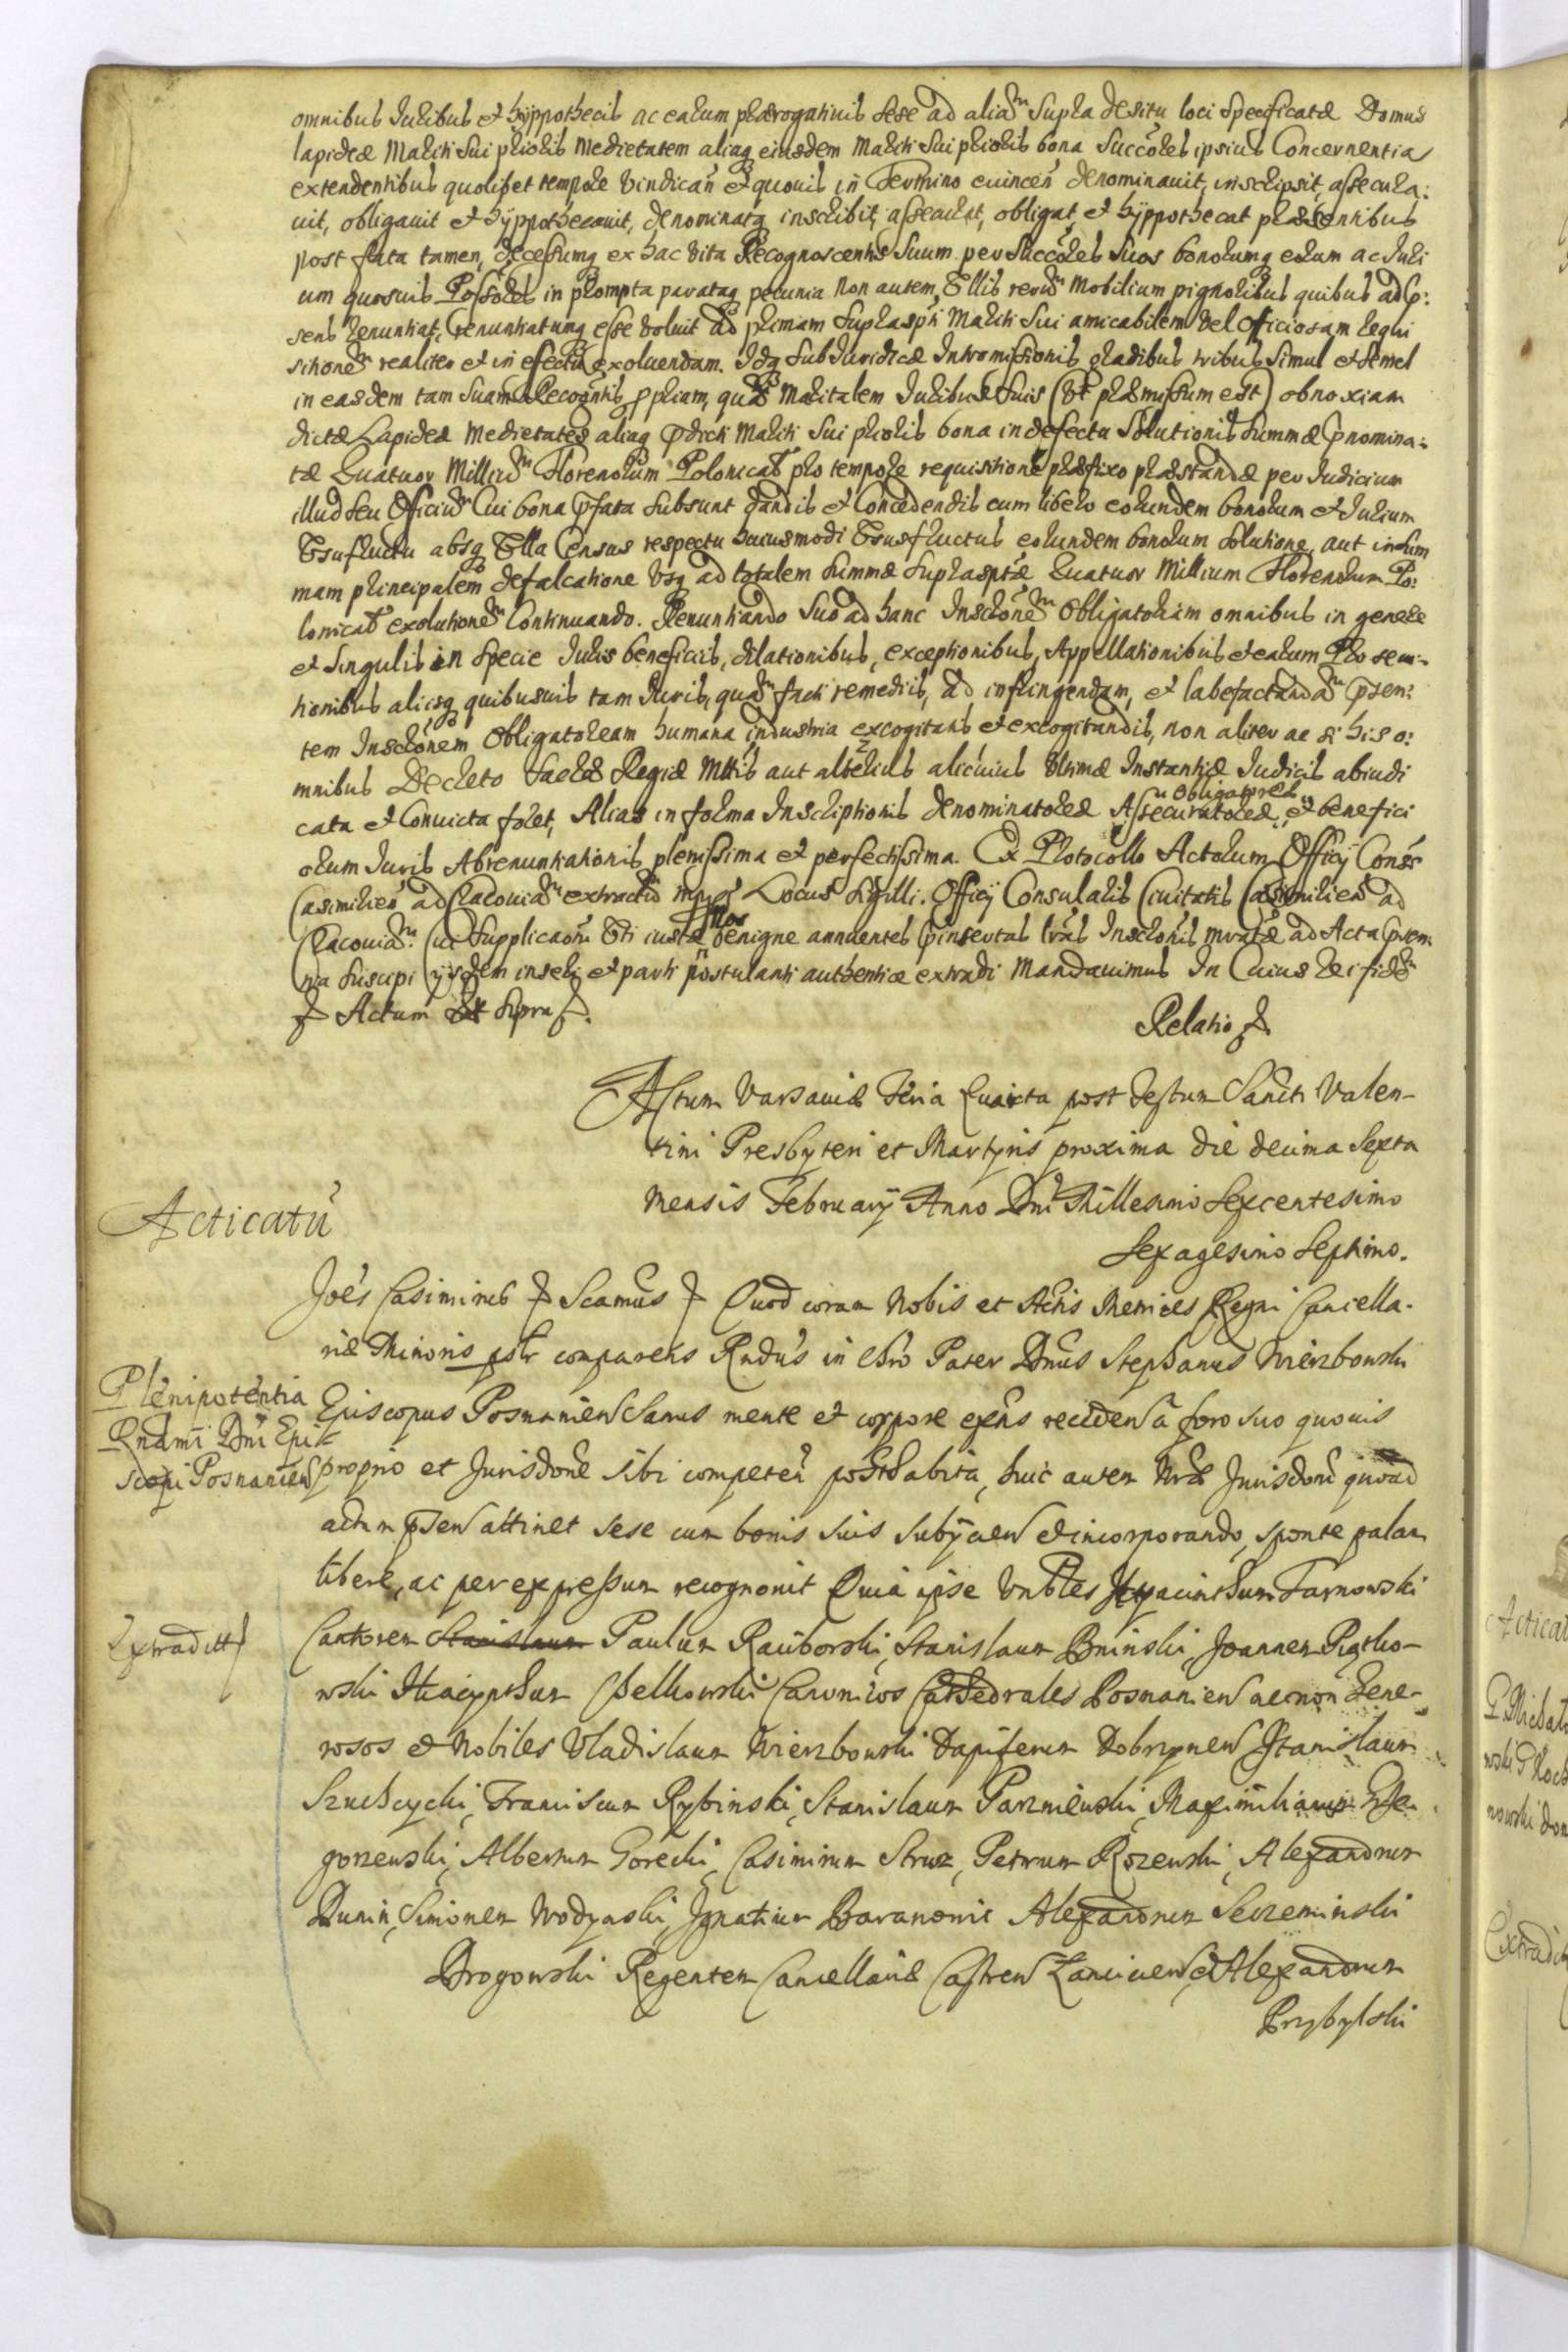 omnibus Juribus et hÿppothecis ac earum prærogatiuis sese ad aliam supra de situ loci specificatæ Domus
lapideæ Mariti sui prioris medietatem aliaq eiusdem Mariti sui prioris bona Succores ipsius Concernentia
extendentibus quolibet tempore vindican et quouis in Termino euincen denominauit, inscripsit, assecura:
uit, obligauit et hÿppothecauit, denominatq inscribit, assecurat, obligat et hÿppothecat præsentibus
post fata tamen, decessumq ex hac vita Recognoscentis Suum per Succores Suos bonorumq eorum ac Juri
um quosuis Possores in prompta parataq pecunia non autem Vllis rerum Mobilium pignoribus quibus ad p:
sens renuntiat, renuntiatumq esse voluit ad primam Suprascpti Mariti Sui amicabilem vel Officiosam requi
sitionem realiter et in efectu exoluendam. Idq sub Juridicæ Intromissionis gradibus tribus simul et semel
in easdem tam suam Recogntis ppriam, quam Maritalem Juribus suis (vt præmissum est) obnoxiam
dictæ Lapideæ Medietates aliaq pdicti Mariti sui prioris bona in defectu Solutionis Summæ pnomina:
tæ Quatuor Millium Florenorum Polonical pro tempore requisitione præfixo præstandæ per Judicium
illud seu Officium Cui bona pfata subsunt dandis et Concedendis cum libero eorundem bonorum et Jurium
Vsufructu absq Vlla Census respectu huiusmodi Vsusfructus eorundem bonorum Solutione, aut in sum
mam principalem defalcatione vsq ad totalem summæ suprascptæ Quatuor Millium Florenorum Po:
lonical exolutionem Continuando. Renuntiando Suo ad hanc Inscrõnem Obligatoriam omnibus in genere
et singulis in specie Juris beneficiis, dilationibus, exceptionibus, Appellationibus et earum Prosecu-
tionibus aliisq quibusuis tam Juris, quam facti remediis, ad infringendam, et labefactandam psen:
tem Inscrõnem Obligatoream humana industria excogitatis et excogitandis, non aliter ac si his o:
mnibus Decreto Sacræ Regiæ Mttis aut alterius alicuius vltimæ Instantiæ Judicis abiudi
cata et Conuicta foret, Alias in forma Inscriptionis denominatoreæ Assecuratoreæ Obligatoreæ et benefici
orum Juris Abrenuntiationis plenissima et perfectissima. Ex Protocollo Actorum Officÿ Consr
Casimilien ad Cracouiam extractum mppr Locus Sigilli. Officÿ Consularis Ciuitatis Casimirien ad
Cracouiam. Cui Supplicaõni Vti iustæ Nos benigne annuentes pinsertas lras Inscrõnis mratæ ad Acta prem
nra suscipi ijsdem inseri et parti postulanti authentice extradi Mandauimus In Cuius rei fidem
Actum Vt supra
Relatio
Actum Varsauiæ Feria Quarta post Festum Sancti Valen-
tini Presbyteri et Martyris proxima die decima Sexta
Mensis Februarÿ Anno Dni Millesimo Sexcentesimo
Sexagesimo Septimo.
Acticatu
Joes Casimirus Scamus Quod coram Nobis et Actis Metrices Regni Cancella-
riæ Minoris psltr comparens Rndus in Chro Pater Dnus Stephanus Wierzbowski
Plenipotentia
Rndmi Dni Epi
scopi Posnanien
Episcopus Posnanien Sanus mente et corpore exns recedens a foro suo quouis
proprio et Jurisdone sibi competen posthabita, huic autem Nræ Jurisdoni quoad
actum psen attinet sese cum bonis suis subÿcien et incorporando, sponte palam
libere, ac per expressum recognouit Quia ipse Vnbles Hyacinthum Tarnowski
Extraditt
Cantorem Stanislaum Paulum Raciborski, Stanislaum Bninski, Joannem Piątko-
wski Hiacynthum Chełkowski Canonicos Cathedrales Posnanien necnon Gene-
rosos et Nobiles Vladislaum Wierzbowski Dapiferum Dobrzynen Stanislaum
Szuchcycki, Franciscum Rybinski, Stanislaum Parzniewski, Maximilianum
gorzewski, Albertum Gorecki, Casimirum Strus, Petrum Rozewski, Alexandrum
Dunin, Simonem Wodzaski, Ignatium Baranowic Alexandrum Seczeminski
Brogowski Regentem Cancellariæ Castren Lancicien et Alexandrum
Przybylski